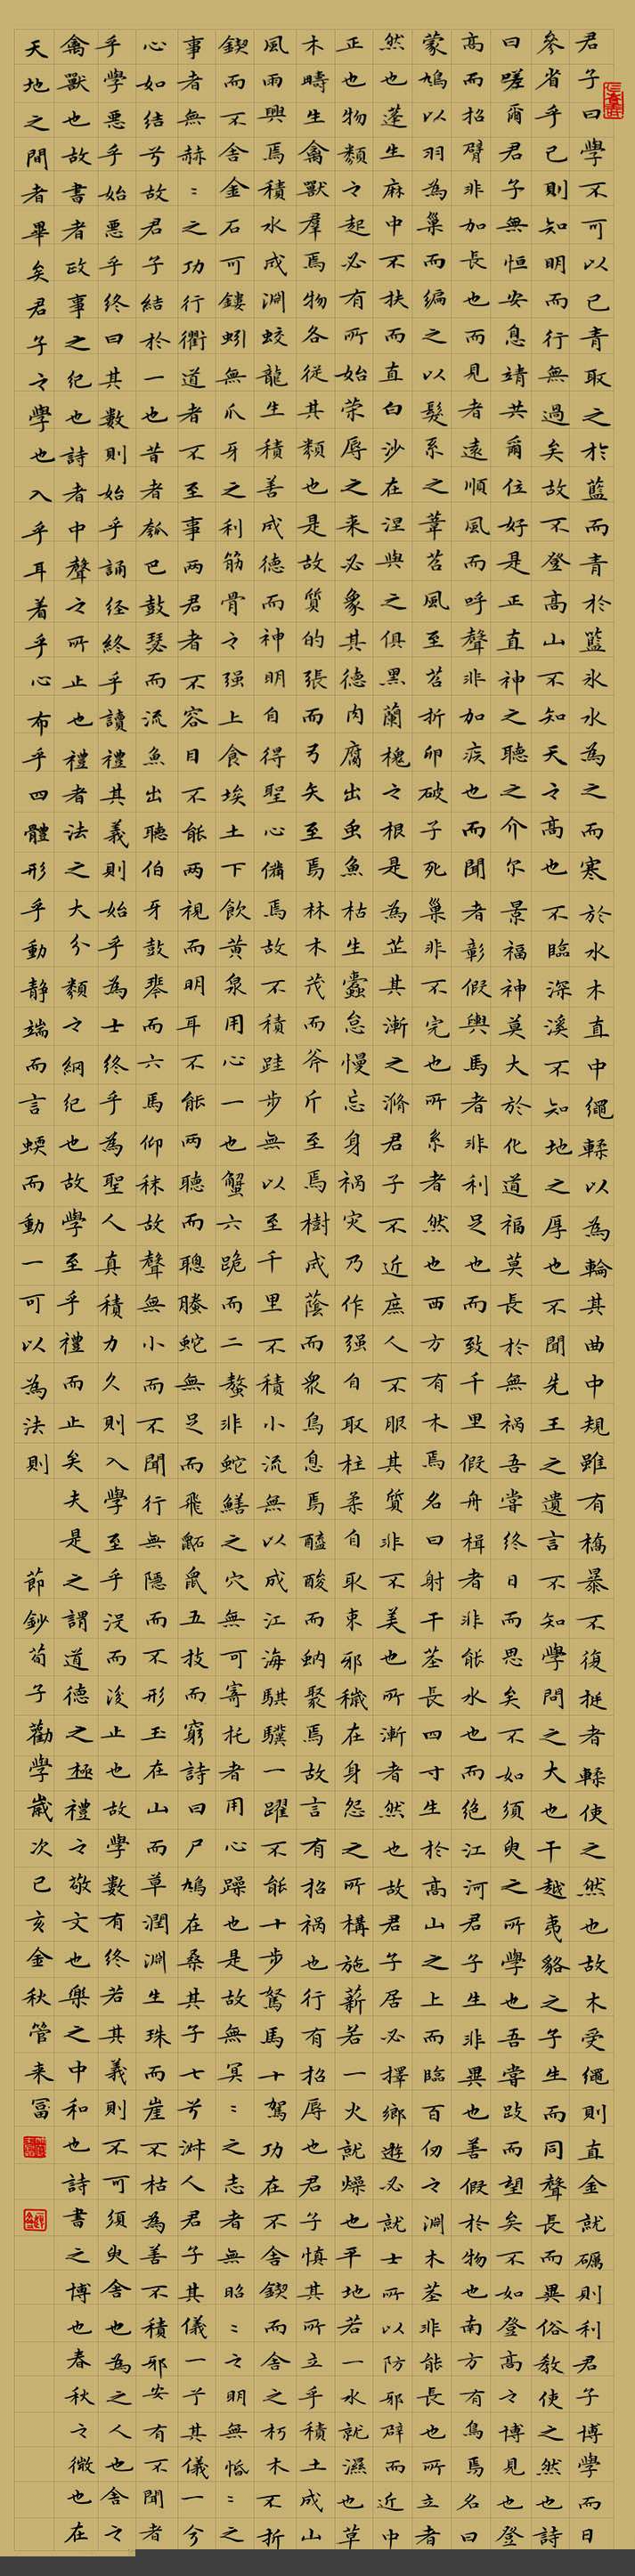 君子曰學不可以已青取之於藍而青於藍氷水為之而寒於水木直中繩輮以為輪其曲中規雖有槁暴不復挺者輮使之然也故木受繩則直金就礪則利君子博學而日
參省乎己則知明而行無過矣故不登高山不知天之高也不臨深溪不知地之厚也不聞先王之遺言不知學問之大也干越夷貉之子生而同聲長而異俗教使之然也詩
曰嗟爾君子無恒安息靖共爾位好是正直神之聽之介尔景福神莫大於化道福莫長於無禍吾嘗終日而思矣不如須臾之所學也吾嘗跂而望矣不如登高之博見也登
高而招臂非加長也而見者遠順風而呼聲非加疾也而聞者彰假輿馬者非利足也而致千里假舟楫者非能水也而絕江河君子生非異也善假於物也南方有鳥焉名曰
蒙鳩以羽為巢而編之以髮系之葦苕風至苕折卵破子死巢非不完也所系者然也西方有木焉名曰射干莖長四寸生於高山之上而臨百仞之淵木莖非能長也所立者
然也蓬生麻中不扶而直白沙在涅與之俱黑蘭槐之根是為芷其漸之滫君子不近庶人不服其質非不美也所漸者然也故君子居必擇鄉遊必就士所以防邪辟而近中
正也物類之起必有所始榮辱之来必象其德肉腐出虫魚枯生蠹怠慢忘身禍灾乃作强自取柱柔自取束邪穢在身怨之所構施薪若一火就燥也平地若一水就濕也草
木疇生禽獸羣焉物各從其類也是故質的張而弓矢至焉林木茂而斧斤至焉樹成蔭而衆鳥息焉醯酸而蚋聚焉故言有招禍也行有招辱也君子慎其所立乎積土成山
風雨興焉積水成淵蛟龍生積善成德而神明自得聖心備焉故不積跬步無以至千里不積小流無以成江海騏驥一躍不能十步駑馬十駕功在不舍鍥而舍之朽木不折
鍥而不舍金石可鏤蚓無爪牙之利筋骨之强上食埃土下飲黄泉用心一也蟹六跪而二螯非蛇鱔之穴無可寄托者用心躁也是故無冥〻之志者無昭〻之明無惛〻之
事者無赫〻之功行衢道者不至事兩君者不容目不能兩視而明耳不能兩聽而聰螣蛇無足而飛鼫鼠五技而窮詩曰尸鳩在桑其子七兮淑人君子其儀一兮其儀一兮
心如結兮故君子結於一也昔者瓠巴鼓瑟而流魚出聽伯牙鼓琴而六馬仰秣故聲無小而不聞行無隱而不形玉在山而草潤淵生珠而崖不枯為善不積邪安有不聞者
乎學惡乎始惡乎終曰其數則始乎誦經終乎讀禮其義則始乎為士終乎為聖人真積力久則入學至乎没而後止也故學數有終若其義則不可須臾舍也為之人也舍之
禽獸也故書者政事之紀也詩者中聲之所止也禮者法之大分類之綱紀也故學至乎禮而止矣夫是之謂道德之極禮之敬文也樂之中和也詩書之博也春秋之微也在
天地之間者畢矣君子之學也入乎耳着乎心布乎四體形乎動静端而言蝡而動一可以為法則
節鈔荀子勸學歲次己亥金秋管来冨